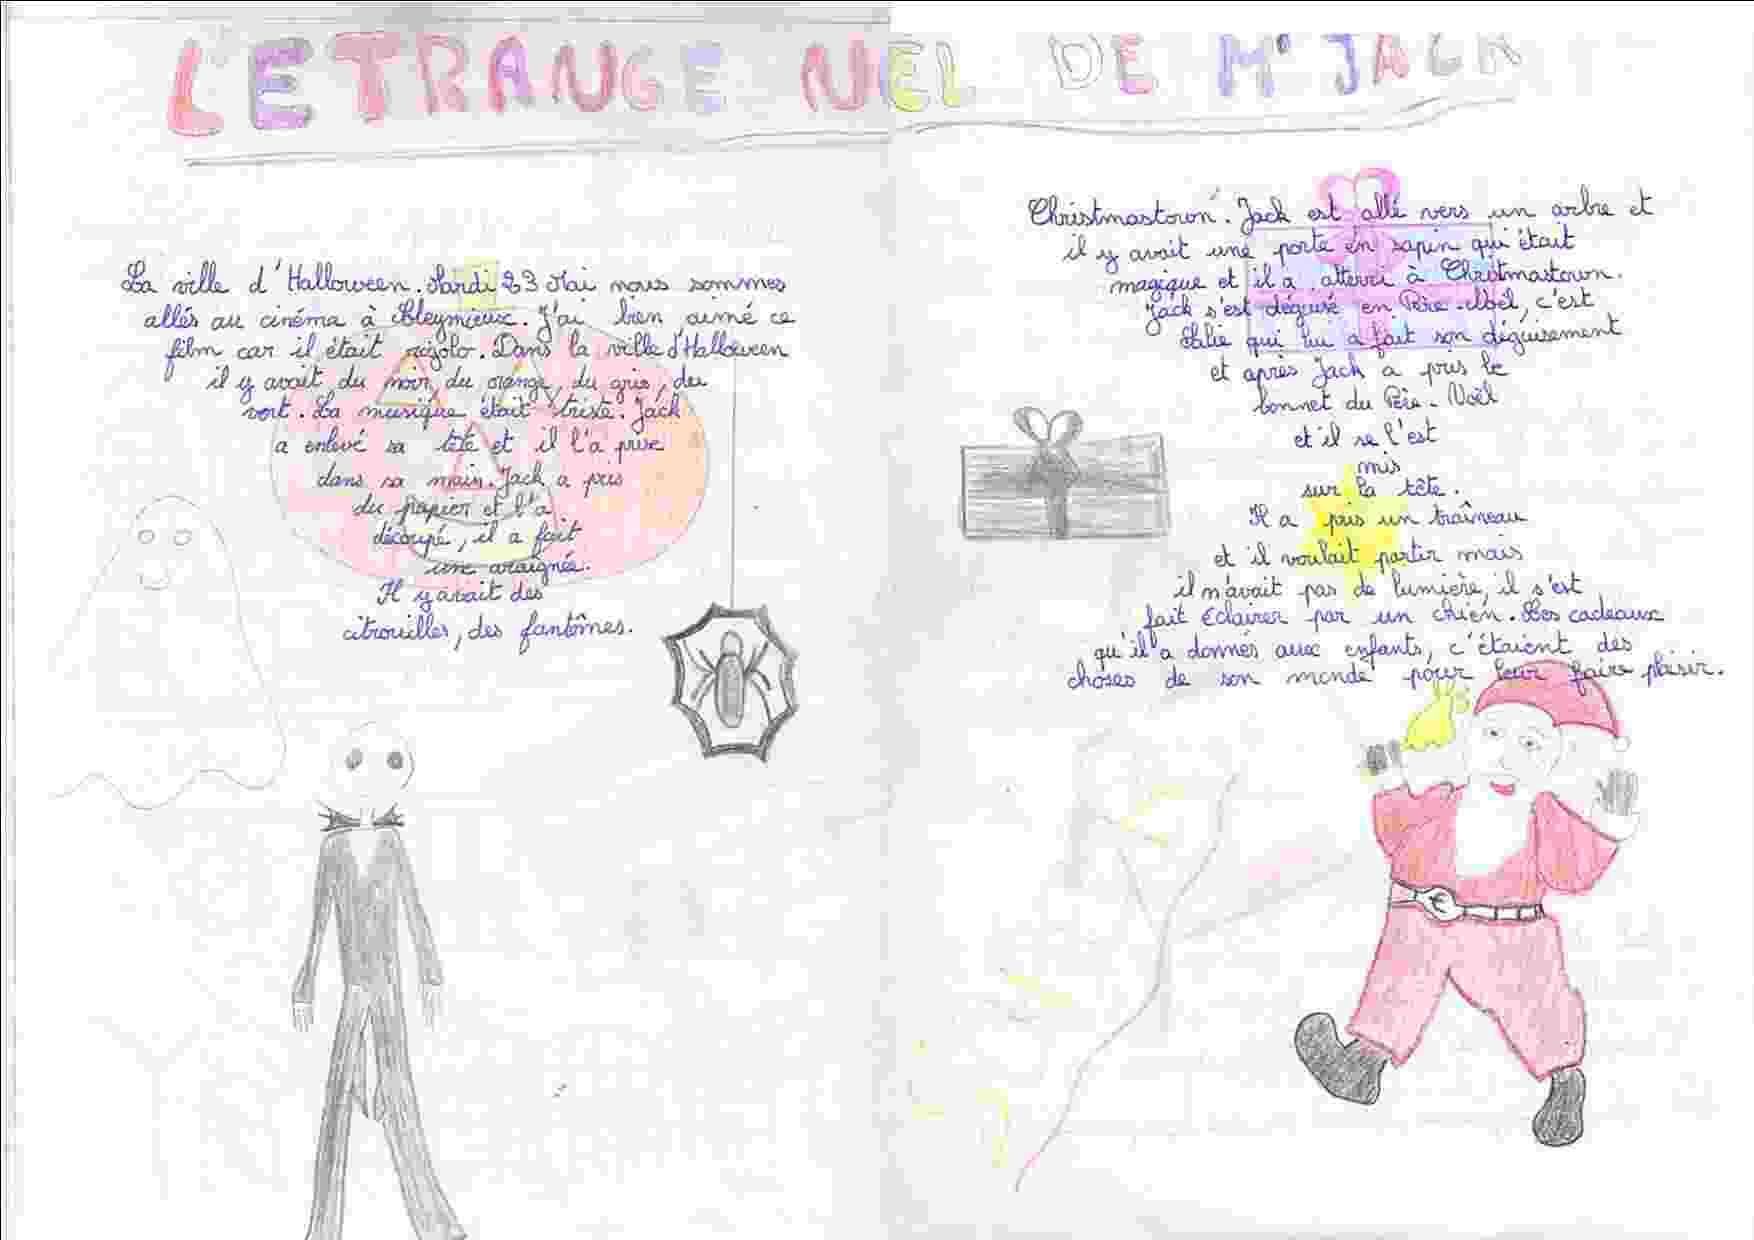 LETRANGE NEL DE Mr JACK
La ville d'Halloween. Mardi 23 Mai nous sommes
allés au cinéma à Bleymieux. J'ai bien aimé ce
film car il était rigolo. Dans la ville d'Halloween
il y avait du noir, du orange, du gris, du
vert. La musique était triste. Jack
a enlevé sa tête et il l'a prise
dans sa main. Jack a pris
du papier et l'a
découpé, il a fait
une araignée.
Il y avait des
citrouilles, des fantômes.
Christmastown. Jack est allé vers un arbre et
il y avait une porte en sapin qui était
magique et il a atterri à Christmastown.
Jack s'est déguisé en Père-Noël, c'est
Salie qui lui a fait son déguisement
et après Jack a pris le
bonnet du Père-Noël
et il se l'est
mis
sur la tête.
Il a pris un traîneau
et il voulait partir mais
il n'avait pas de lumière, il s'est
fait éclairer par un chien. Les cadeaux
qu'il a donnés aux enfants, c'étaient des
choses de son monde pour leur faire plaisir.